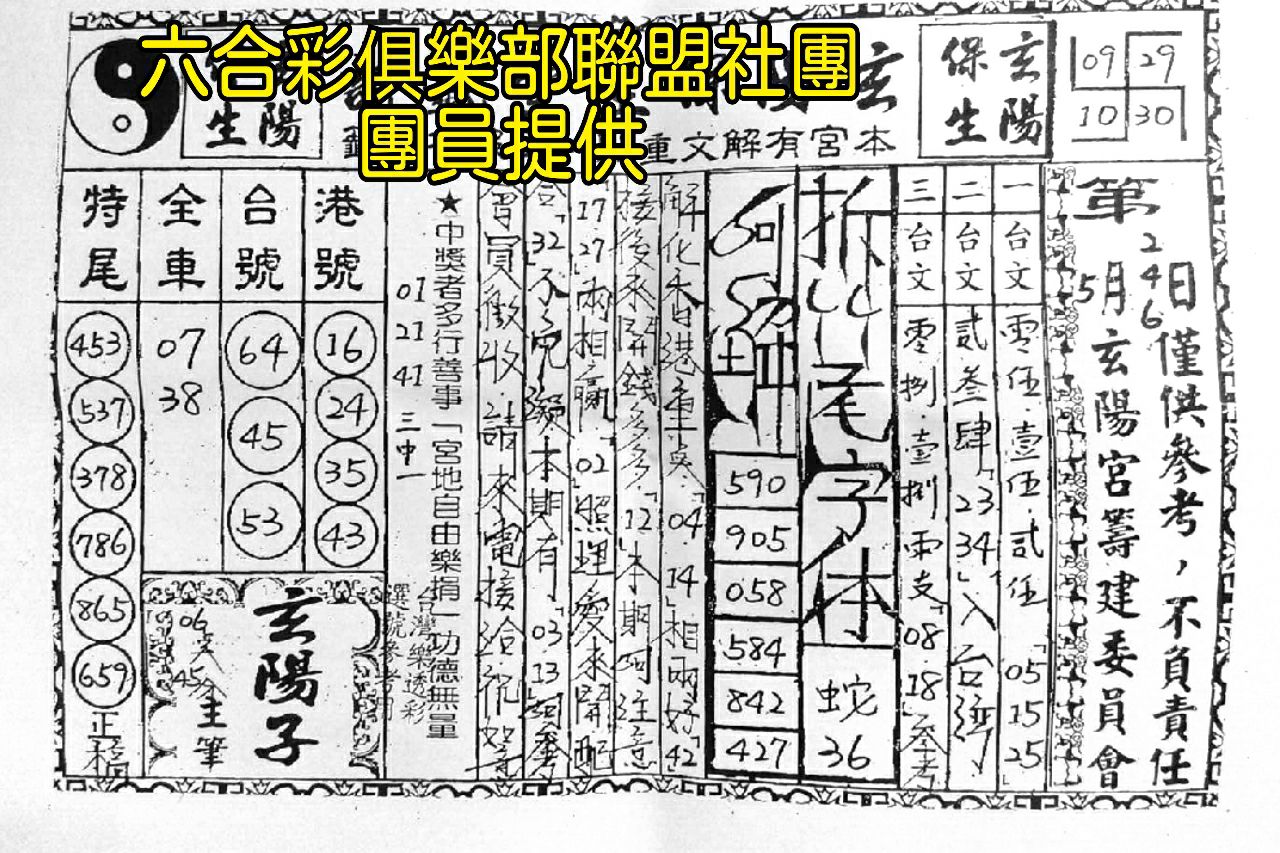 六合彩俱樂部聯盟社團
團員提供
玄
玄陽
保生
09 29
10 30
本宮有解文重
陽
生
第246
5月 日僅供參考，不負責任
玄陽宮籌建委員會
一台文 零伍·壹伍·貳伍「05 15 25
二台文 貳叁肆「23 34」入台
三台文 零捌·壹捌兩支「08 18」參考
拆 尾字体
蛇
36
590
905
058
584
842
427
解化 香港重 「04 14」相兩好「42
接後來 錢多多「12」本期 注意
17 27」兩相贏「02」照理愛來 配
合「32 不 本期有「03 13」 參
會員徵收·請來電接洽
★中獎者多行善事「宮地自由樂捐」功德無量
台灣樂透彩
選號參考用
01 21 41 三中一
港號
16
24
35
43
台號
64
45
53
全車
07
38
特尾
453
537
378
786
865
659
正
玄陽子
06
45
主筆